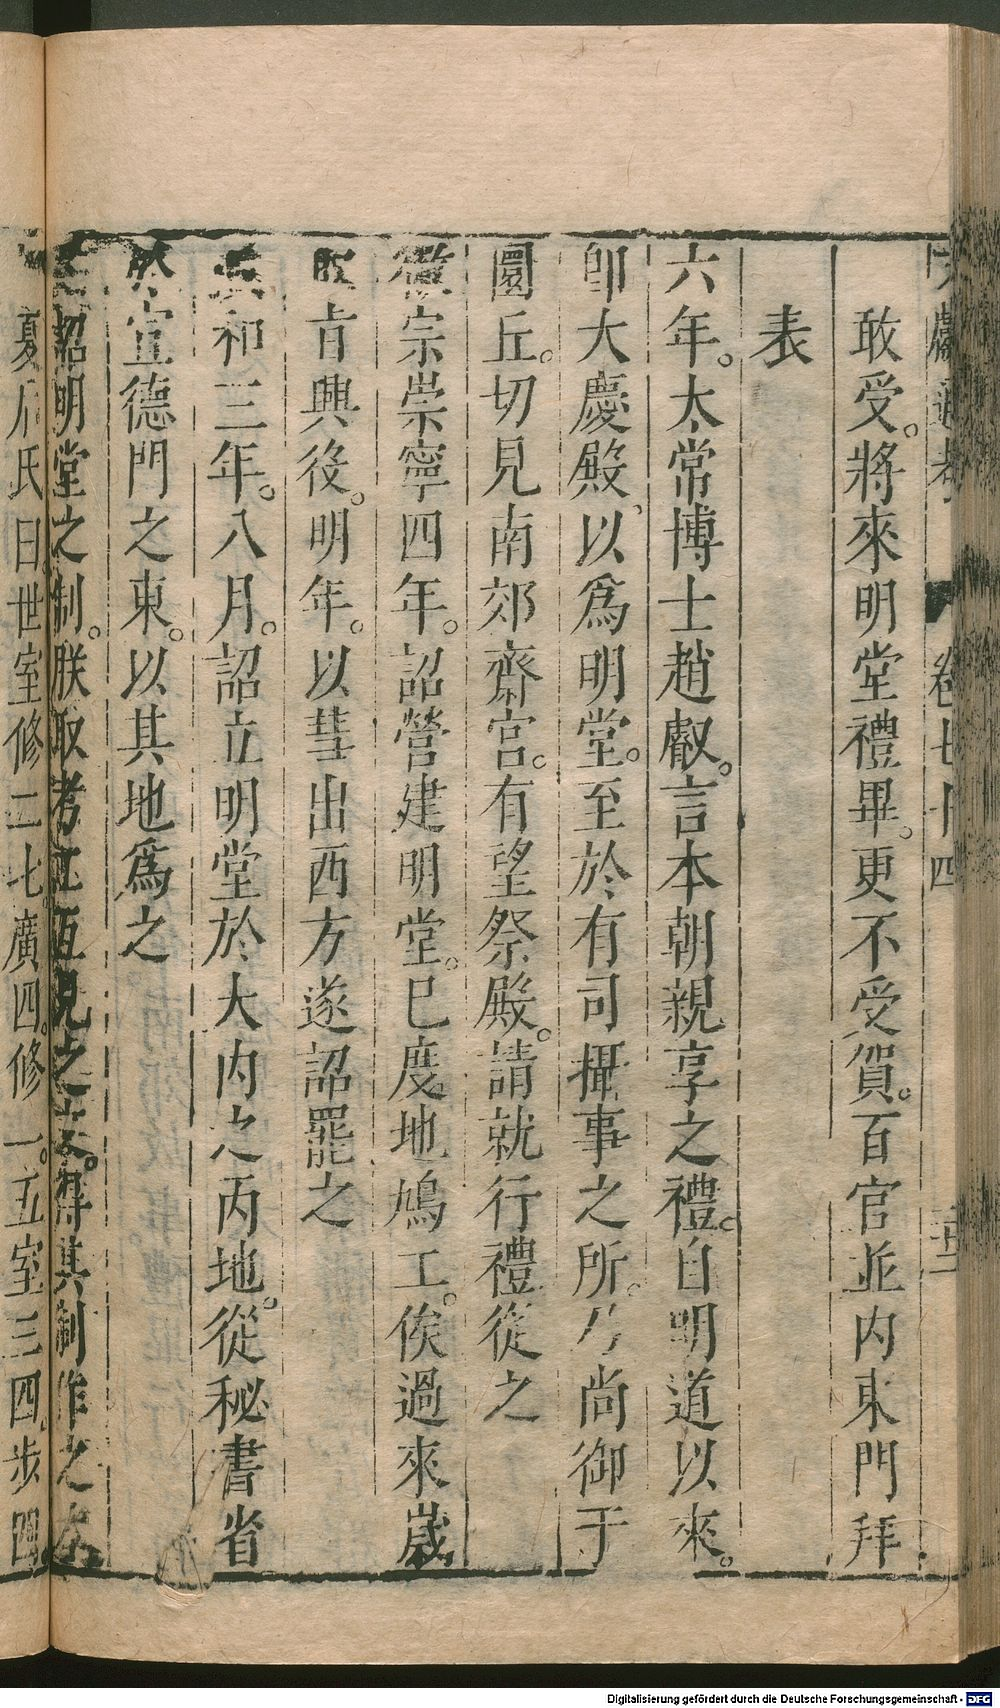 獻通考 卷七十四
敢受。將來明堂禮畢。更不受賀。百官並內東門拜
表
六年。太常博士趙叡。言本朝親享之禮。自明道以來。
卽大慶殿、以爲明堂。至於有司攝事之所。乃尚御于
圜丘。切見南郊齋宮。有望祭殿。請就行禮從之
徽宗崇寧四年。詔營建明堂。已度地鳩工。俟過來歲
取旨興役。明年。以彗出西方遂詔罷之
和三年。八月。詔立明堂於大内之丙地。從秘書省
宣德門之東。以其地爲之
詔明堂之制。朕取考工互見之文。得其制作之本
夏后氏曰。世室修二七。廣四。修一。五室三四步四
Digitalisierung gefördert durch die Deutsche Forschungsgemeinschaft - DFG